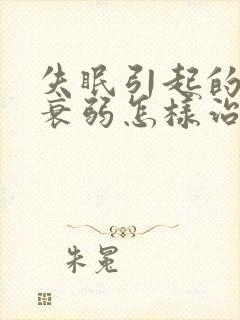 失眠引起的
衰弱怎样治
朱冕